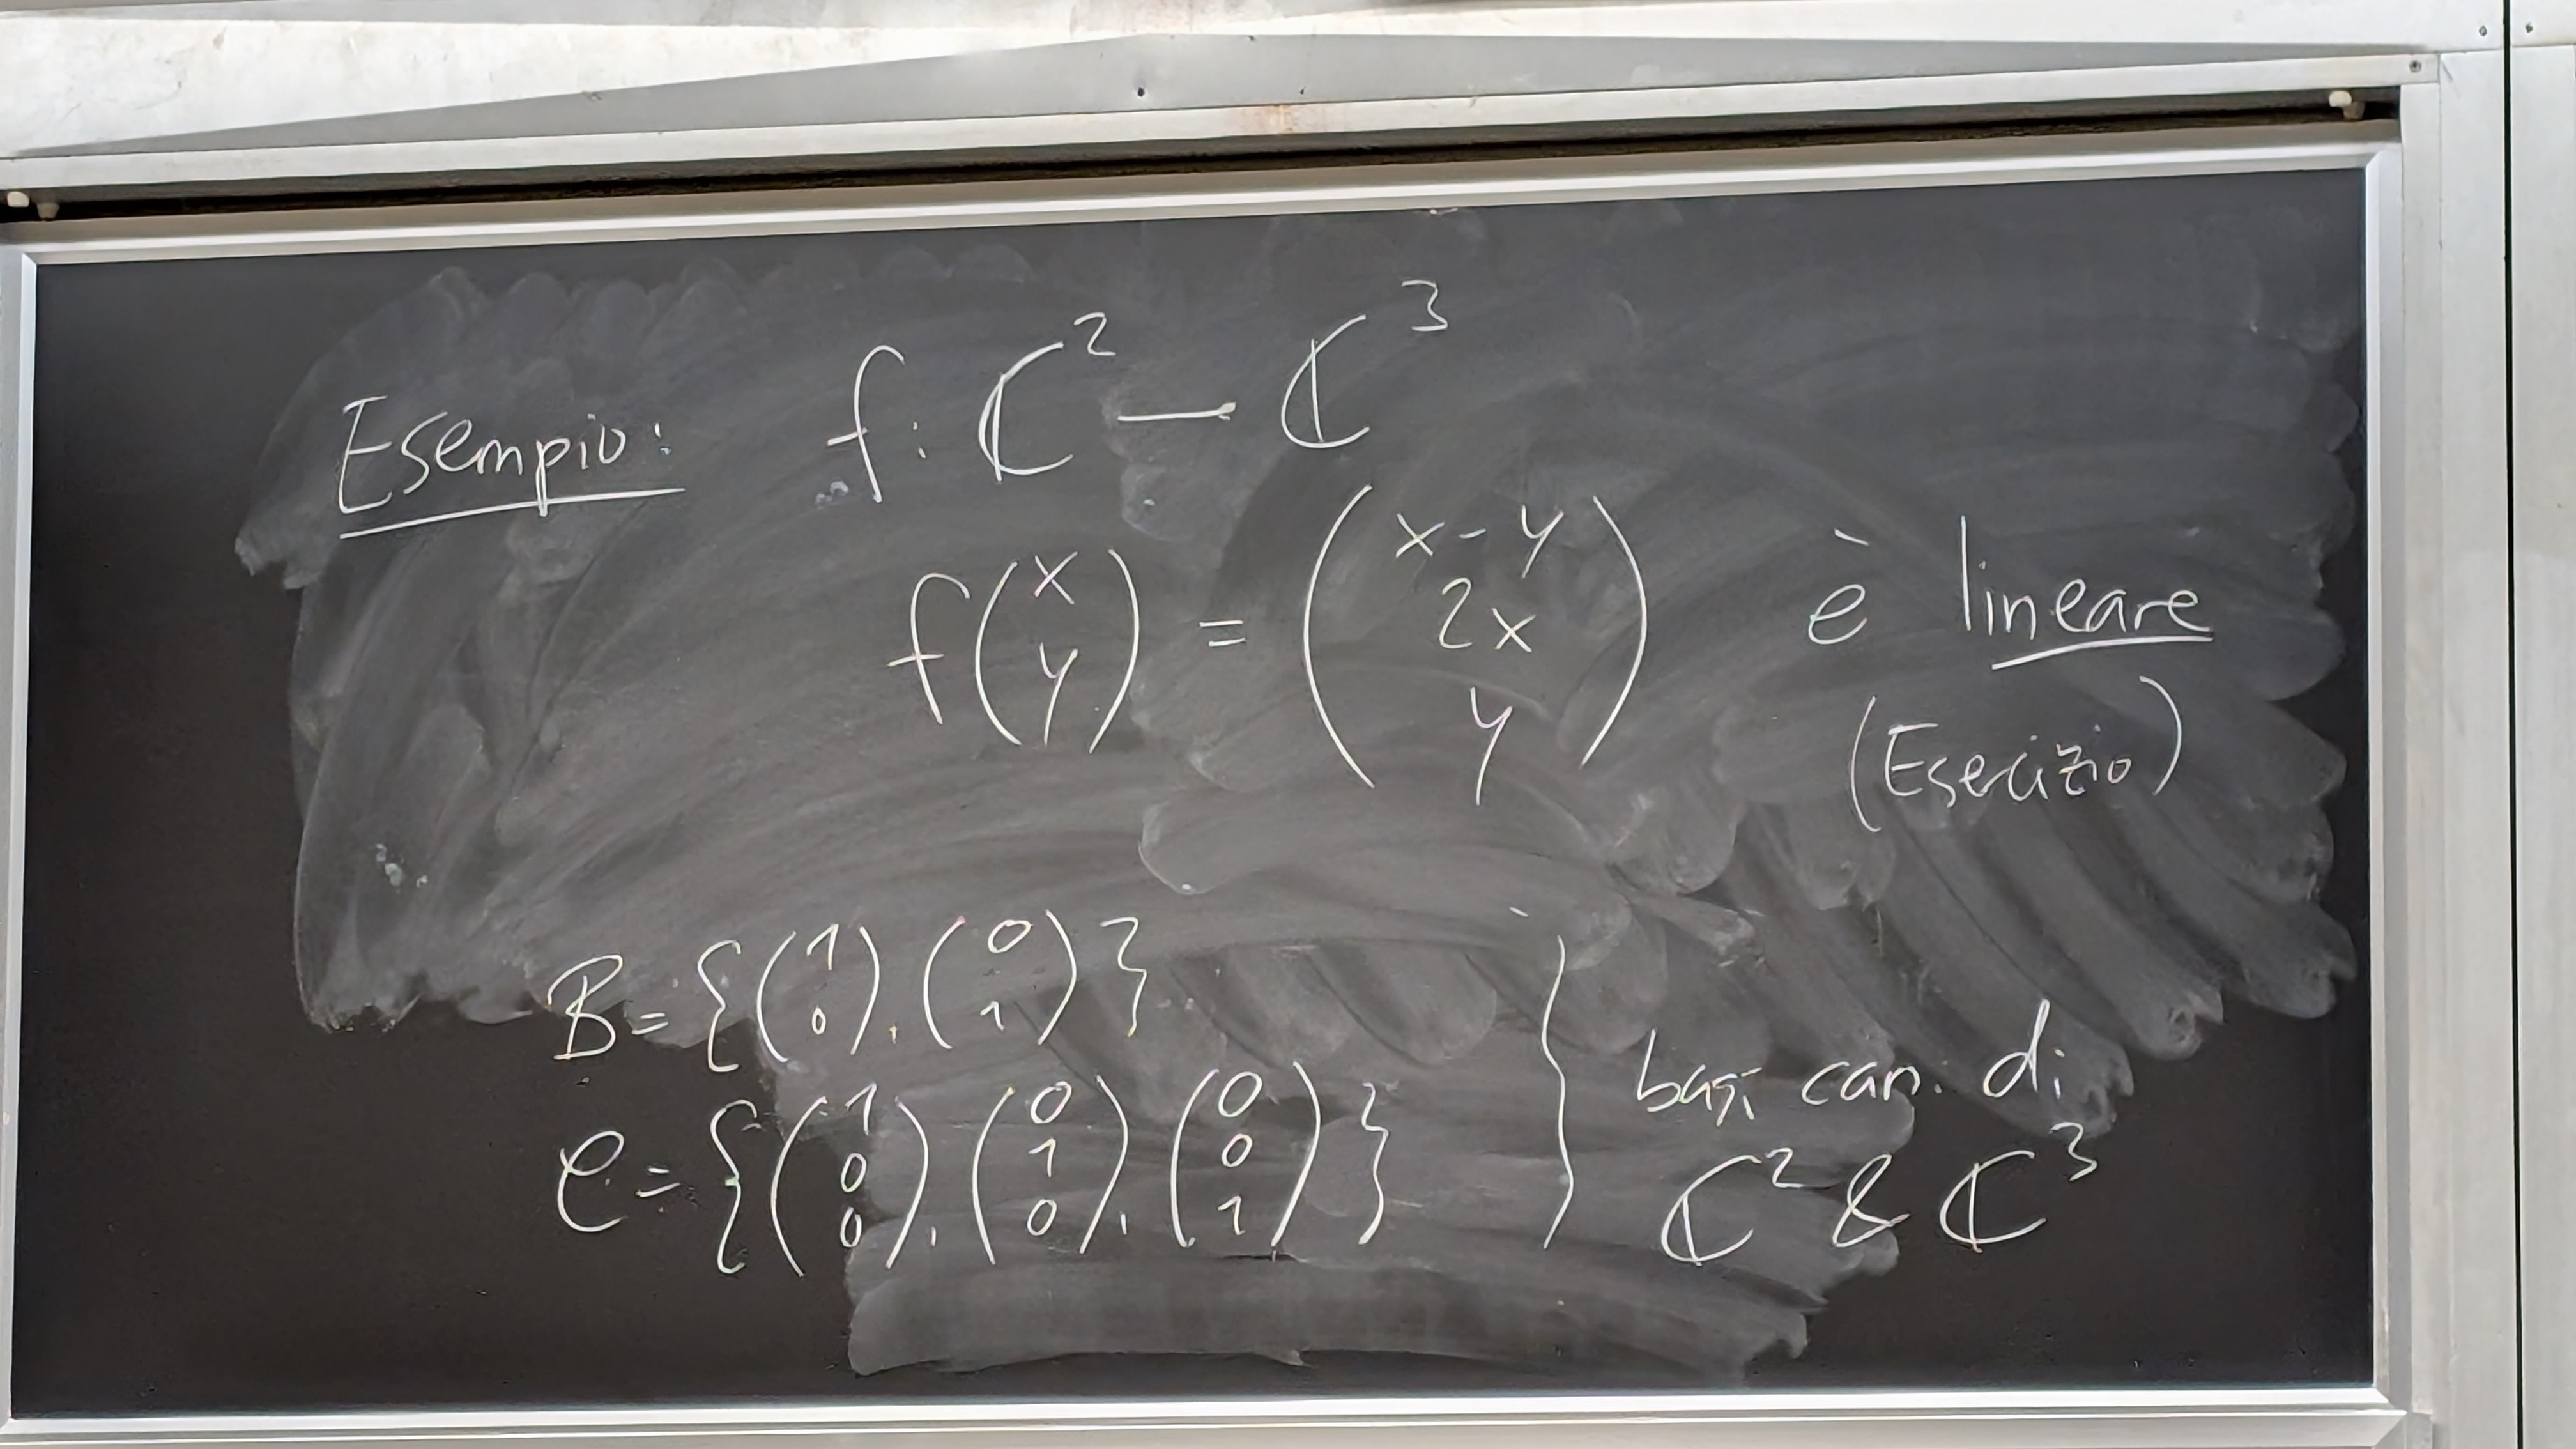 Esempio: f: ℂ² — ℂ³
f(x y) = (x-y 2x y) è lineare
(Esercizio)
B = {(1 0), (0 1)}
C = {(1 0 0), (0 1 0), (0 0 1)}
basi can. di
ℂ² & ℂ³